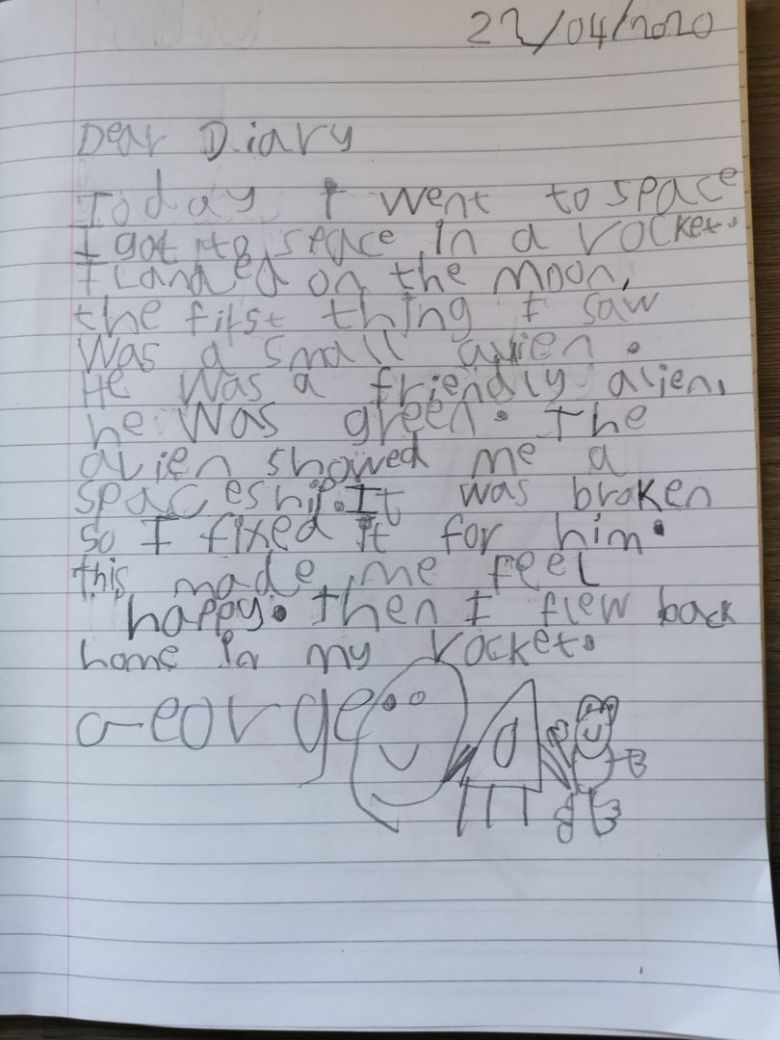 22/04/2020
Dear Diary
Today I went to space
I got to space in a rocket.
I landed on the moon,
the first thing I saw
Was a small alien.
He was a friendly alien,
he was green. The
alien showed me a
spaceship. It was broken
so I fixed it for him.
this made me feel
happy. Then I flew back
home in my rocket.
George